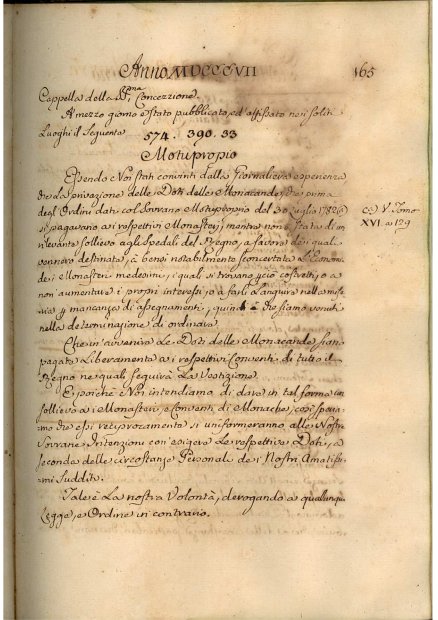 Anno MDCCCVII
165
Cappella della SS.ma Concezzione.
A mezzo giorno è stato pubblicato, ed affissato nei soliti
Luoghi il seguente
574. 390. 33
Motupropio
Essendo Noi stati convinti dalla Giornaliera esperienza
che La privazione delle Doti delle Monacande, che prima
degl'Ordini dati col Sovrano Motupropio del 30 Luglio
si pagavano ai respettivi Monasterj, mentre non è stata di un
rilevante sollievo agli Spedali del Regno, a favore dei quali
vennero destinate, à bensì notabilmente sconcertata L'Econo
dei Monasteri medesimi, i quali si trovano perciò costretti, o a
non aumentare i propri interessi, o a farli Languire nella mise
ria p mancanza di assegnamenti, quindi è che siamo venuti
nella determinazione di ordinare.
Che in avvenire Le Doti delle Monacande sian
pagate Liberamente ai respettivi Conventi di tutto il
Regno ne quali seguirà La Vestizione.
E poiche Noi intendiamo di dare in tal forma un
sollievo ai Monasteri, e Conventi di Monache, così speria
mo che essi reciprocamente si uniformeranno alle Nostre
Sovrane Intenzioni con esigere Le respettive Doti, a
seconda delle circostanze Personali dei Nostri Amatissi
mi Sudditi.
Tale è La nostra Volontà, derogando a qualunque
Legge, e Ordine in contrario.
V. Tomo
XVI. a 129